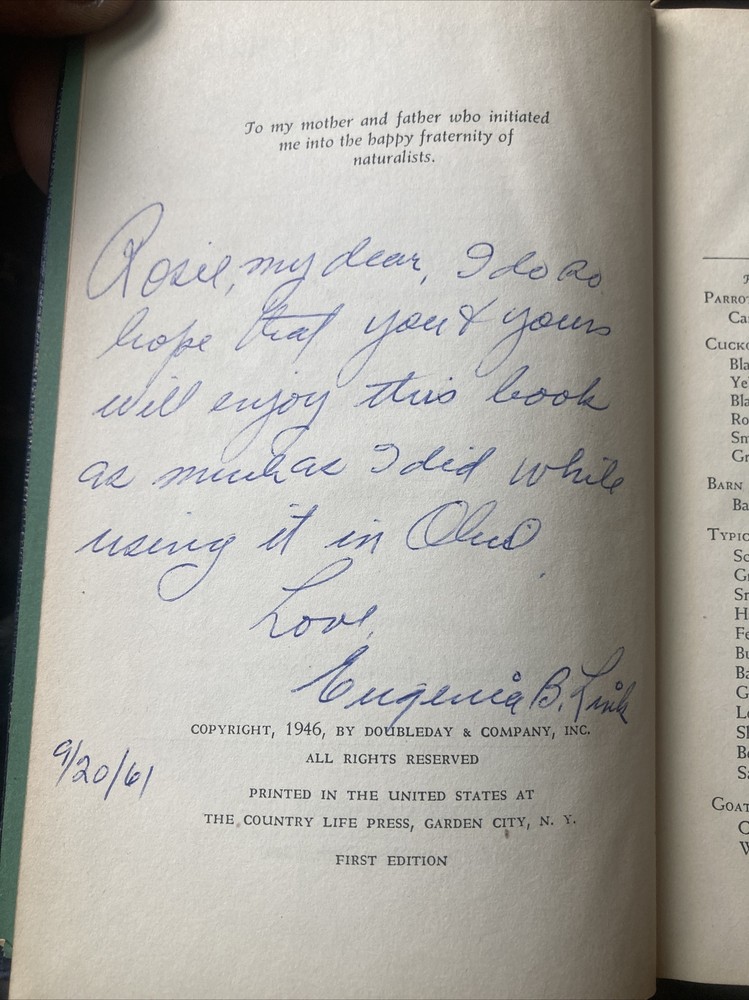 To my mother and father who initiated
me into the happy fraternity of
naturalists.
Rosie, my dear, I do so
hope that you & yours
will enjoy this book
as much as I did while
using it in Ohio
Love,
Eugenia B. Link
COPYRIGHT, 1946, BY DOUBLEDAY & COMPANY, INC.
9/20/61
ALL RIGHTS RESERVED
PRINTED IN THE UNITED STATES AT
THE COUNTRY LIFE PRESS, GARDEN CITY, N. Y.
FIRST EDITION
PARROT
Ca
CUCKO
Bla
Ye
Bla
Ro
Sm
Gr
BARN
Ba
TYPIC
Sc
G
Sn
H
Fe
Bu
Ba
G
Lo
Sh
Bo
Sa
GOAT
C
W